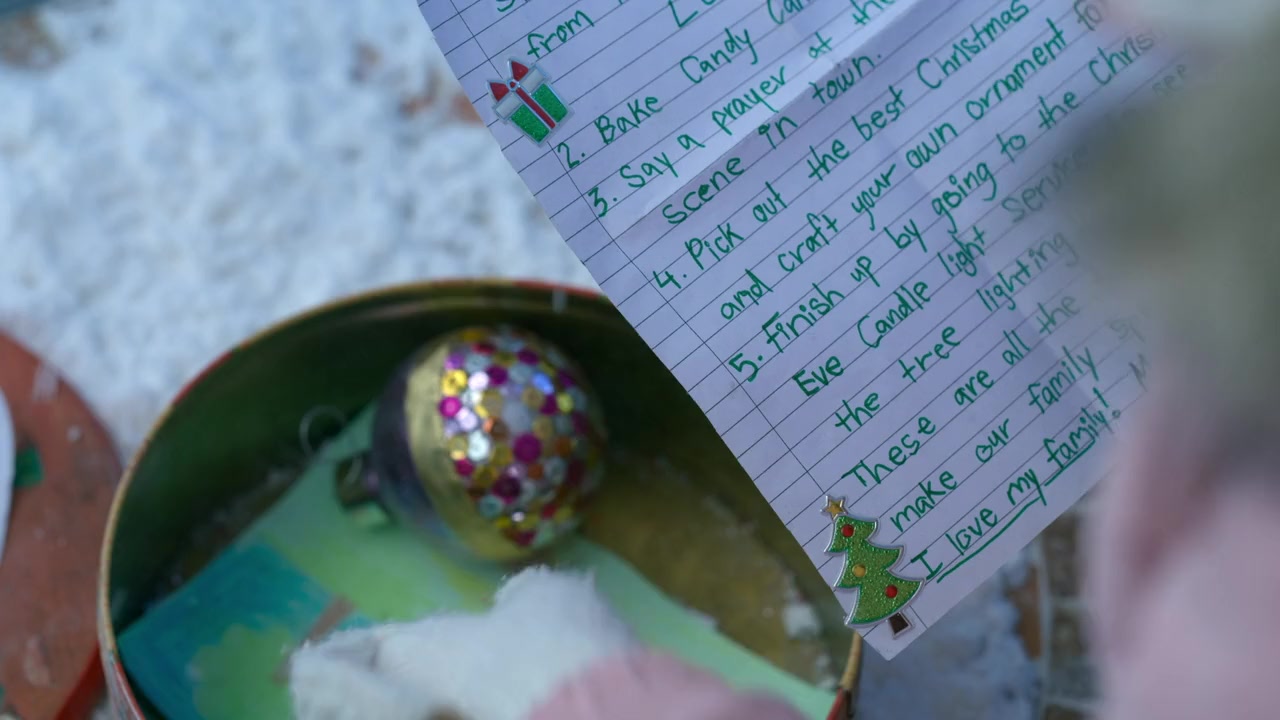 from
2. Bake Candy
3. Say a prayer at the
scene in town.
4. Pick out the best Christmas
and craft your own ornament
5. Finish up by going to the
Eve Candle light
the tree lighting
These are all the
make our family
I love my family!